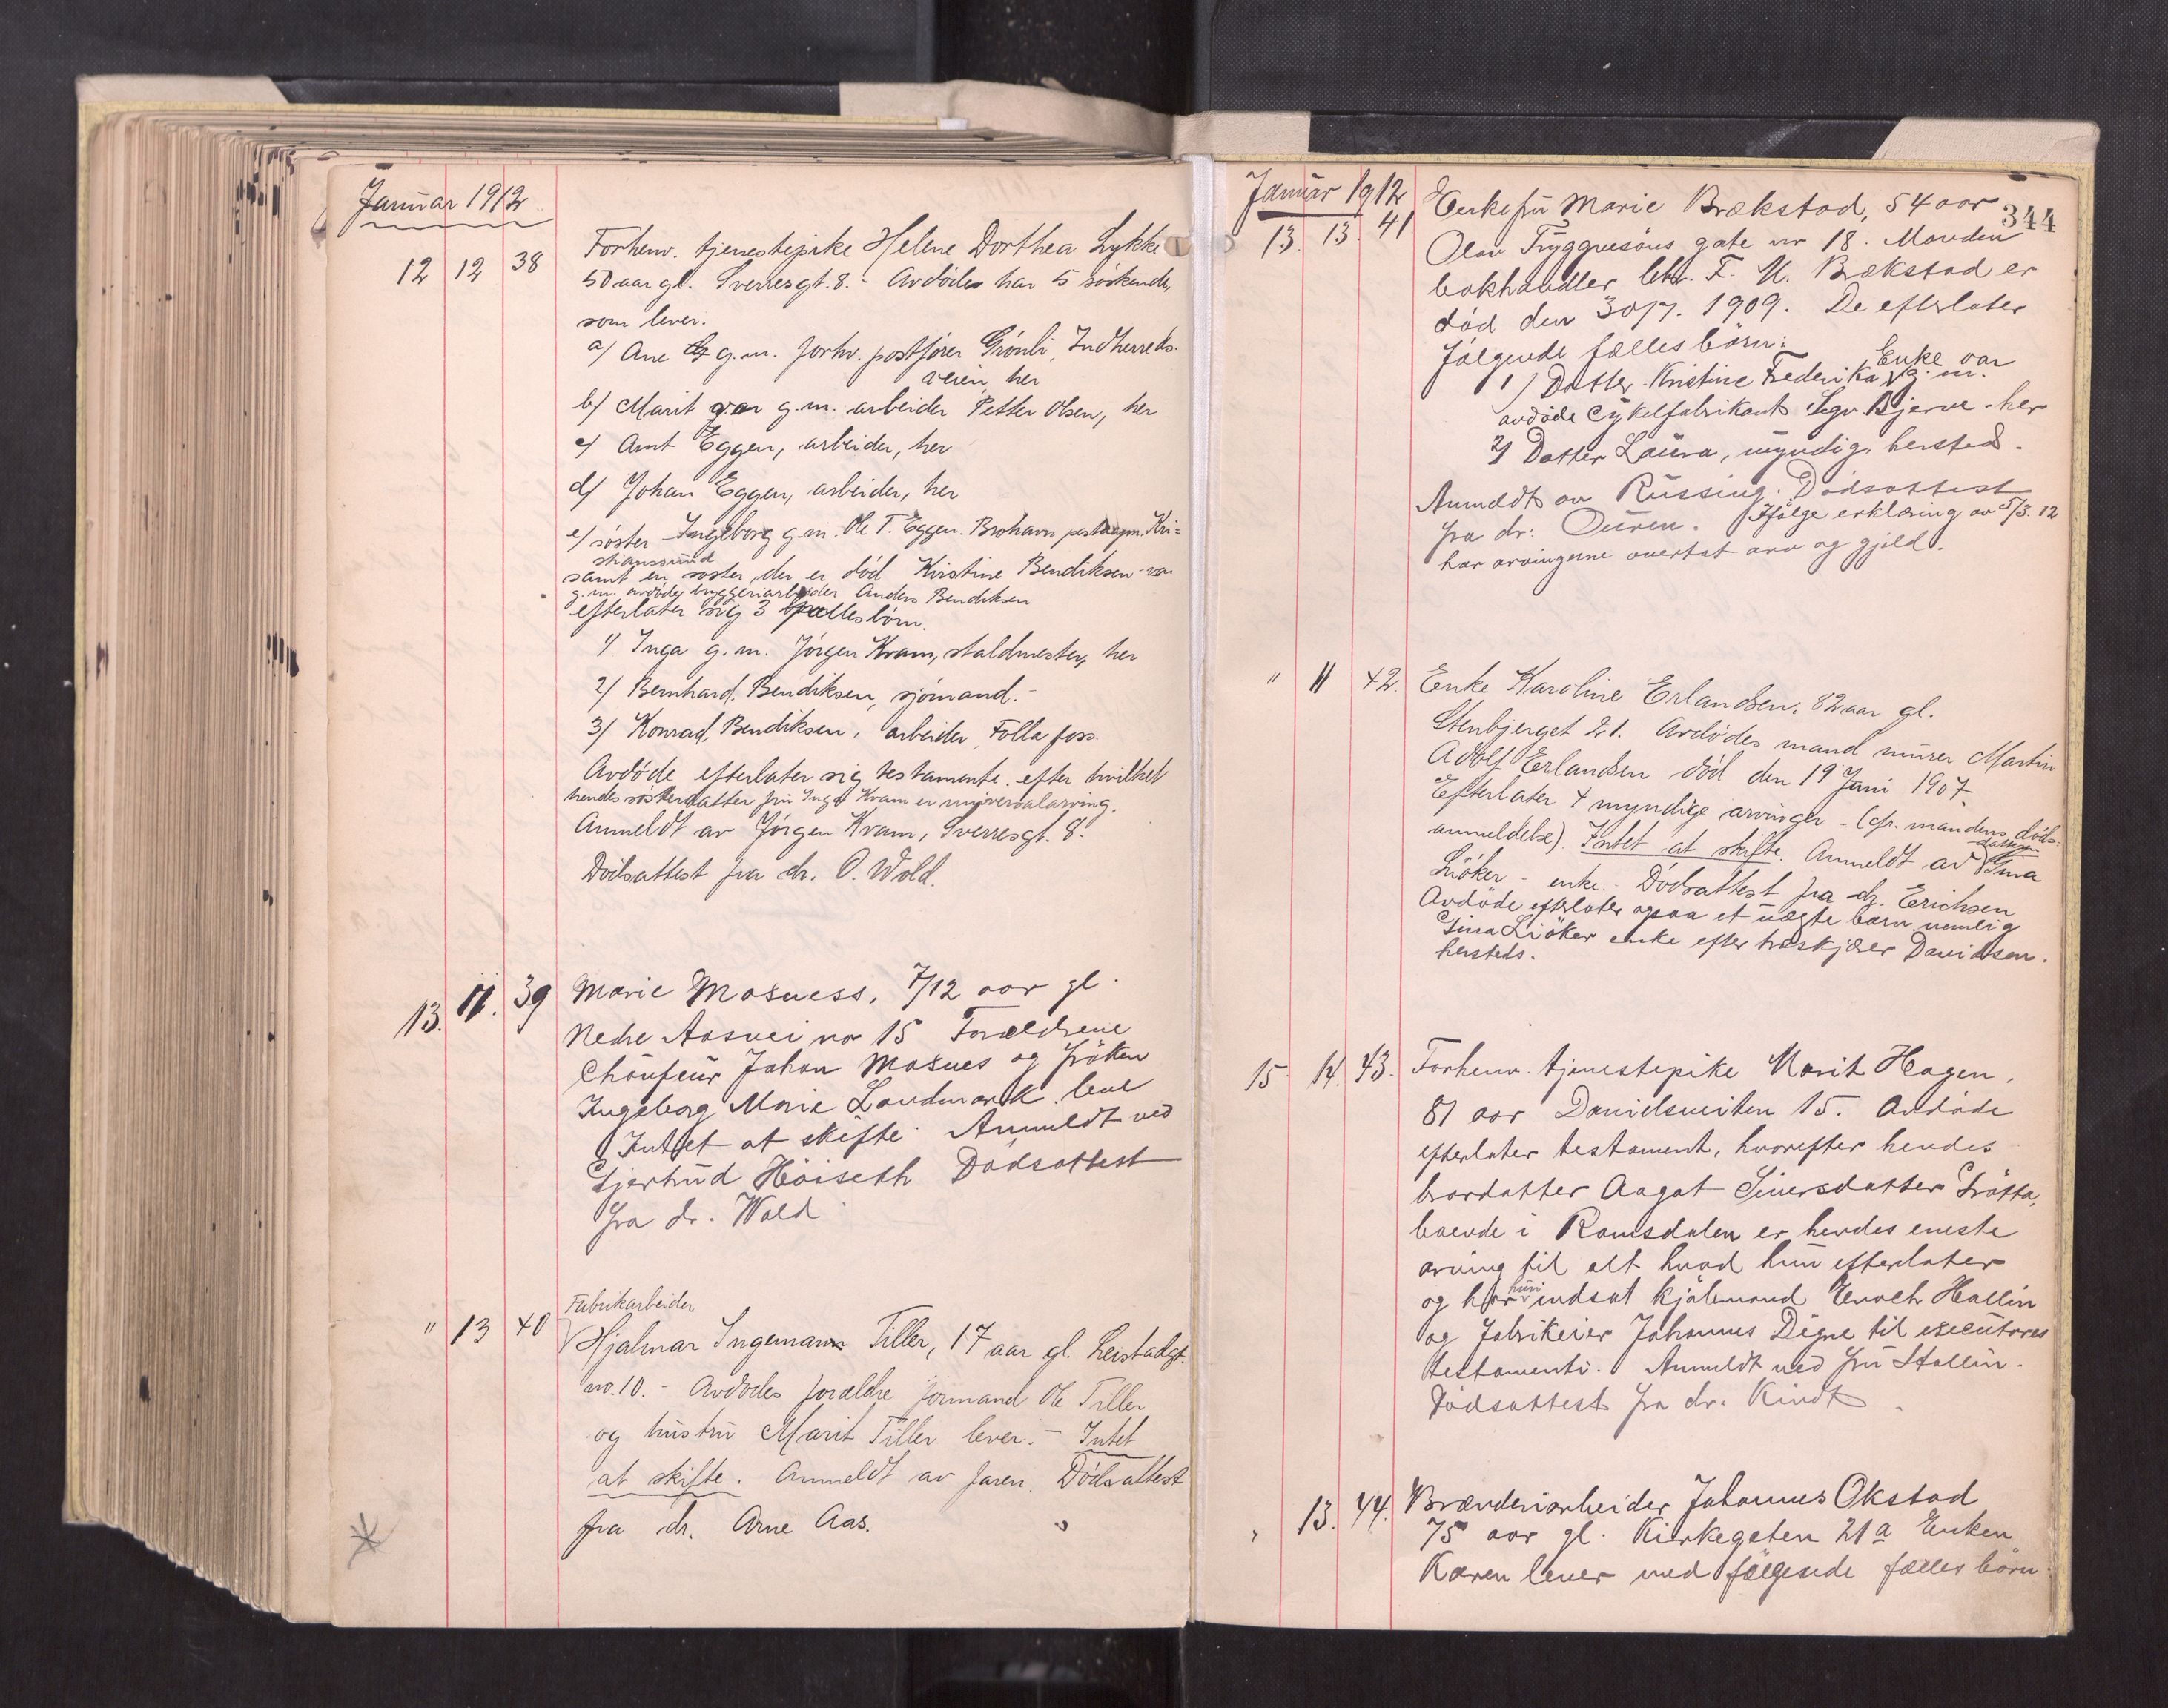 Januar 1912
12 12 38 Forhenv. tjenestepike Helene Dorthea Lykke
50 aar gl. Sverresgt. 8. - Avdøde har 5 søskende,
som lever.
a/ Ane g.m. forhv. postfører Grønli, Indherreds-
veien, her
b/ Marit var g.m. arbeider Petter Olsen, her
c/ Arnt Eggen, arbeider, her
d/ Johan Eggen, arbeider, her
e/ søster Ingeborg g.m. Ole T. Eggen. Brohavn Kri-
stianssund
samt en søster, der er død Kirstine Bendiksen - var
g.m. avdøde bryggeriarbeider Anders Bendiksen
efterlater sig 3 fællesbørn.
1/ Inga g.m. Jørgen Kvam, staldmester, her
2/ Bernhard Bendiksen, sjømand. -
3/ Konrad Bendiksen, arbeider, Follafoss.
Avdøde efterlater sig testamente, efter hvilket
hendes søsterdatter fru Inga Kvam er universalarving.
Anmeldt av Jørgen Kvam, Sverresgt. 8.
Dødsattest fra dr. O. Wold.
13. 11. 39 Marie Mosness, 7/12 aar gl.
Nedre Aasvei no 15 Forældrene
Chaufeur Johan Mosnes og frøken
Ingeborg Marie Landmark leve
Intet at skifte. Anmeldt ved
Gjertrud Høiseth Dødsattest
fra dr. Wold.
" 13 40 Fabrikarbeider
Hjalmar Ingemann Tiller, 17 aar gl. Leistadgt.
no. 10. - Avdødes forældre formand Ole Tiller
og hustru Marit Tiller lever. - Intet
at skifte. Anmeldt av faren. Dødsattest
fra dr. Arne Aas.
344
Januar 1912
13. 13. 41 Enkefru Marie Brækstad, 54 aar
Olav Tryggvesøns gate nr 18. Manden
bokhandler F. M. Brækstad er
død den 30/7. 1909. De efterlater
følgende fællesbørn:
1/ Datter Kristine Frederika Enke var g.m.
avdøde Cykelfabrikant Sigv. Bjerve - her
2/ Datter Laura, myndig, hersted.
Anmeldt av Russing. Dødsattest
fra dr: Øuren. Ifølge erklæring av 5/3. 12
har arvingerne overtat arv og gjeld.
" 11 42. Enke Karoline Erlandsen, 82 aar gl.
Stenbjerget 21. Avdødes mand murer Martin
Adolf Erlandsen død den 19 Juni 1907.
Efterlater 4 myndige arvinger - (cfr. mandens døds-
anmeldelse). Intet at skifte. Anmeldt av datteren Gina
Liøker - enke. - Dødsattest fra dr. Erichsen
Avdøde efterlater ogsaa et uægte barn nemlig
Gina Liøker enke efter træskjærer Davidsen.
hersteds.
15 14. 43. Forhenv. tjenestepike Marit Hagen,
81 aar Danielsveiten 15. Avdøde
efterlater testament, hvorefter hendes
brordatter Aagot Siversdatter Grøtta,
boende i Romsdalen er hendes eneste
arving til alt hvad hun efterlater
og har hun indsat kjøbmand Enoch Hallin
og fabrikeier Johannes Digre til executores
testamenti. Anmeldt ved fru Hallin.
Dødsattest fra dr. Kindt.
" 13. 44. Brænderiarbeider Johannes Okstad
75 aar gl. Kirkegaten 21a Enken
Karen lever med følgende fælles børn: